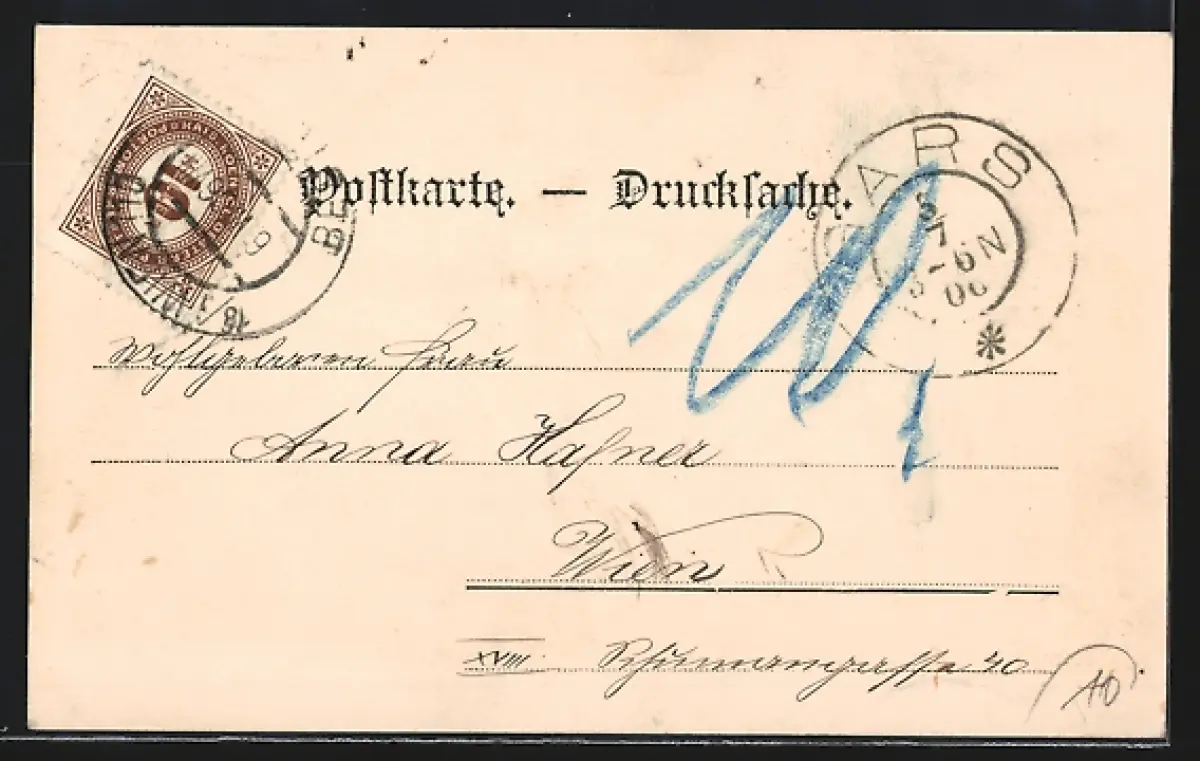 Postkarte. — Drucksache.
ARS
7
6 N
00
10
BE
9
18/
10
Wohlgeboren Frau
Anna Hafner
Wien
XVIII. Schumanngasse 40
10